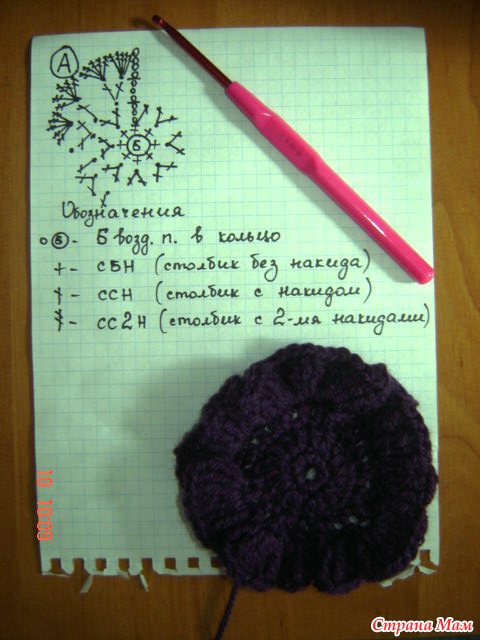 А
Б
Обозначения
о Б - Б возд. п. в кольцо
+ - СБН (столбик без накида)
† - ССН (столбик с накидом)
‡ - СС2Н (столбик с 2-мя накидами)
Страна Мам